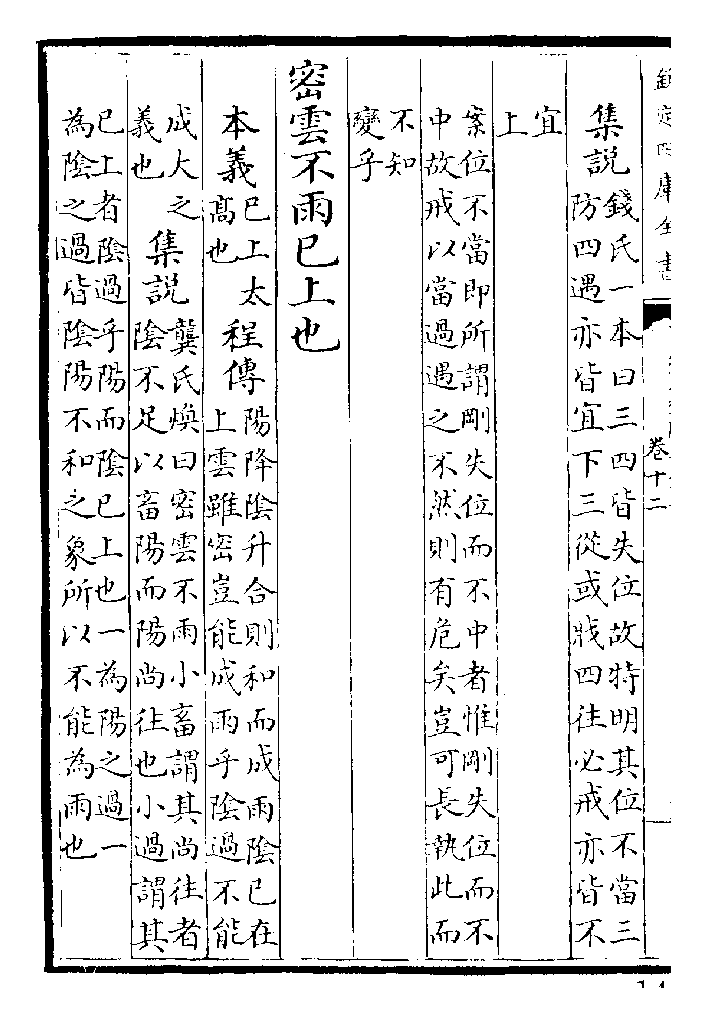 欽定四庫全書
卷十二
集說錢氏一本曰三四皆失位故特明其位不當三
防四遇亦皆宜下三從或戕四往必戒亦皆不
宜
上
案位不當即所謂剛失位而不中者惟剛失位而不
中故戒以當過遇之不然則有危矣豈可長執此而
不知
變乎
密雲不雨已上也
本義已上太
髙也
程傳陽降陰升合則和而成雨陰已在
上雲雖密豈能成雨乎陰過不能
成大之
義也
集說龔氏煥曰密雲不雨小畜謂其尚往者
陰不足以畜陽而陽尚往也小過謂其
已上者陰過乎陽而陰已上也一為陽之過一
為陰之過皆陰陽不和之象所以不能為雨也